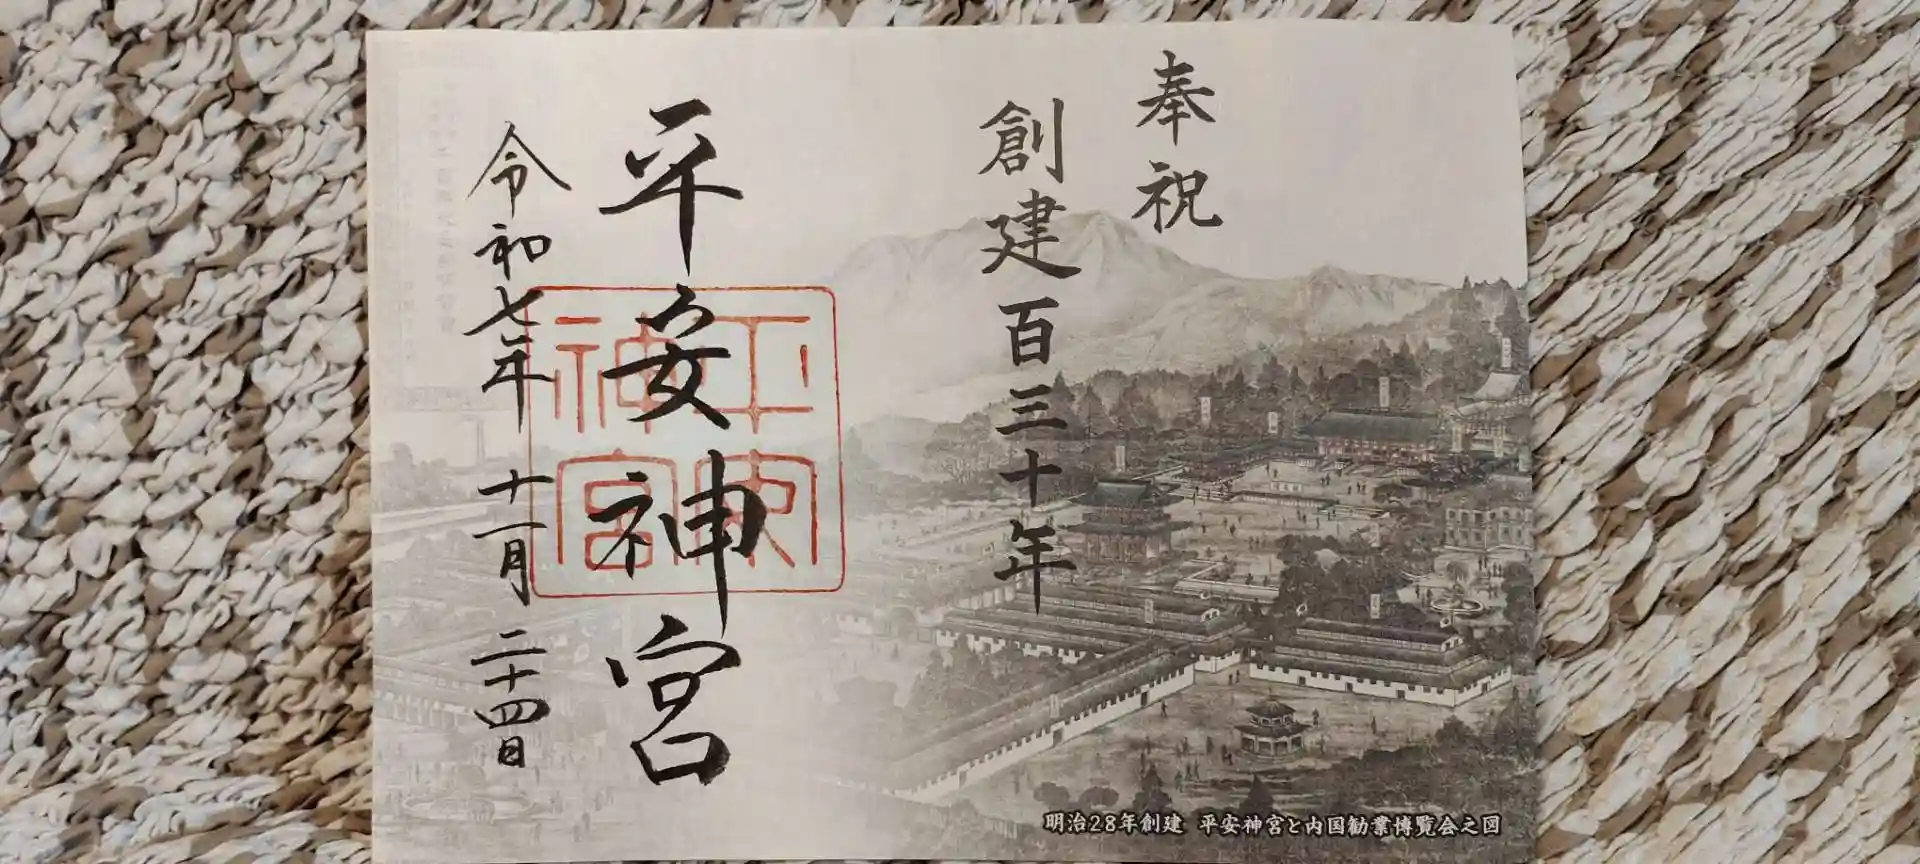 奉祝
創建百三十年
平安神宮
令和七年十一月二十四日
平安神宮
明治28年創建 平安神宮と内国勧業博覧会之図